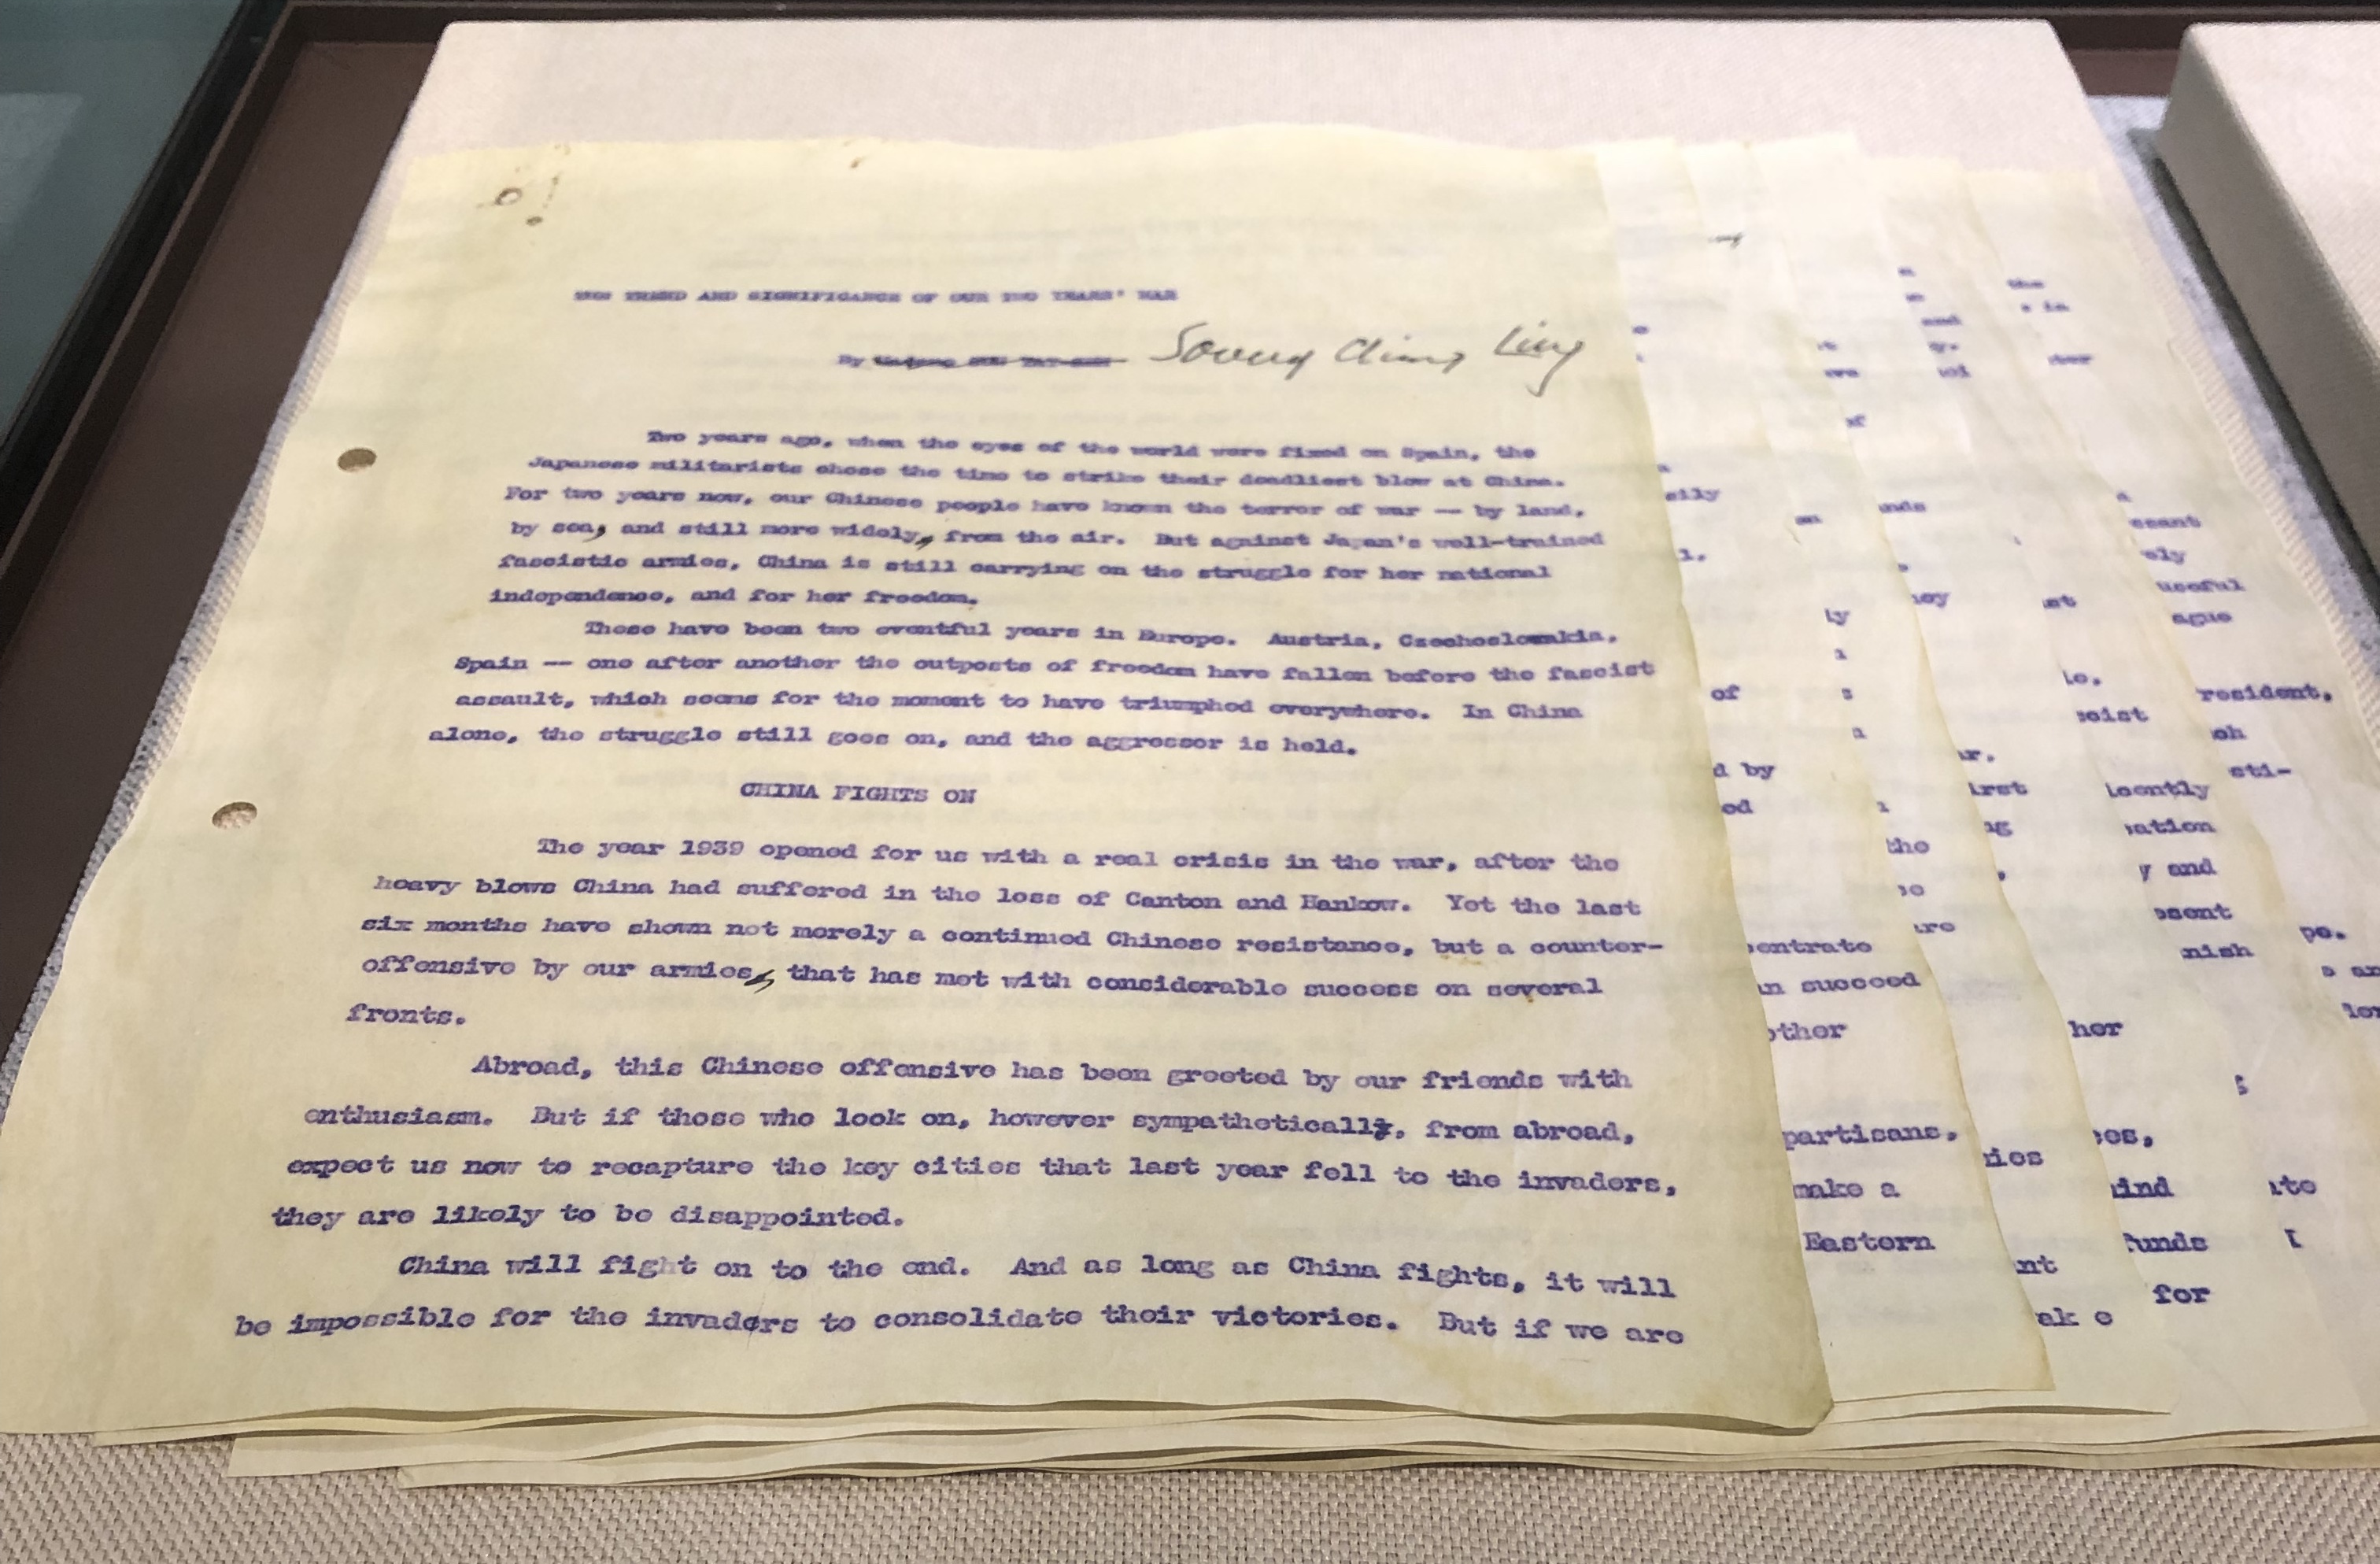 THE TREND AND SIGNIFICANCE OF OUR TWO YEARS' WAR
By Madame SUN YAT-SEN Soong Ching Ling
Two years ago, when the eyes of the world were fixed on Spain, the
Japanese militarists chose the time to strike their deadliest blow at China.
For two years now, our Chinese people have known the terror of war -- by land,
by sea, and still more widely, from the air. But against Japan's well-trained
fascistic armies, China is still carrying on the struggle for her national
independence, and for her freedom.
These have been two eventful years in Europe. Austria, Czechoslovakia,
Spain -- one after another the outposts of freedom have fallen before the fascist
assault, which seems for the moment to have triumphed everywhere. In China
alone, the struggle still goes on, and the aggressor is held.
CHINA FIGHTS ON
The year 1939 opened for us with a real crisis in the war, after the
heavy blows China had suffered in the loss of Canton and Hankow. Yet the last
six months have shown not merely a continued Chinese resistance, but a counter-
offensive by our armies, that has met with considerable success on several
fronts.
Abroad, this Chinese offensive has been greeted by our friends with
enthusiasm. But if those who look on, however sympathetically, from abroad,
expect us now to recapture the key cities that last year fell to the invaders,
they are likely to be disappointed.
China will fight on to the end. And as long as China fights, it will
be impossible for the invaders to consolidate their victories. But if we are
of
by
the
and
succeed
other
her
partisans,
make a
Eastern
funds
for
useful